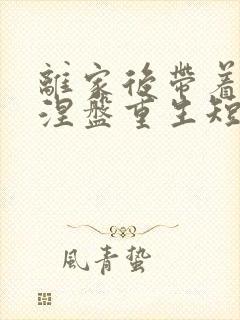 離家後帶着
涅盤重生短
風青蟄